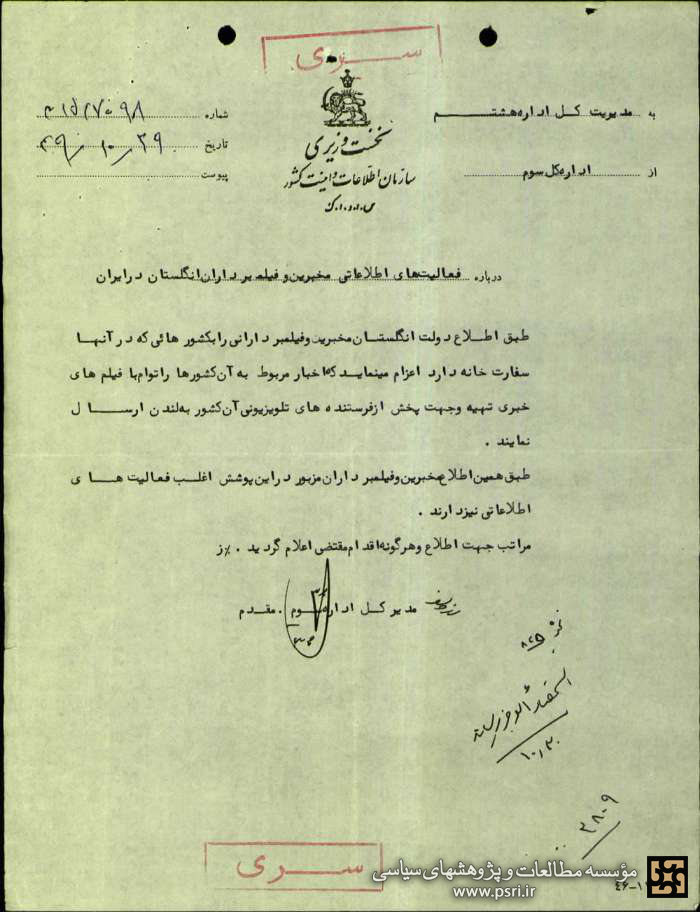 سری
به مدیریت کل اداره هشتم
از اداره کل سوم
نخست وزیری
سازمان اطلاعات و امنیت کشور
س.ا.و.ا.ک
شماره
تاریخ ۴۹/۱۰/۲۹
پیوست
درباره فعالیت‌های اطلاعاتی مخبرین و فیلمبرداران انگلستان در ایران
طبق اطلاع دولت انگلستان مخبرین و فیلمبردارانی را بکشور هائی که در آنها
سفارت خانه دارد اعزام مینماید که اخبار مربوط به آن کشورها را توام با فیلم های
خبری تهیه وجهت پخش از فرستنده های تلویزیونی آن کشور به لندن ارسال
نمایند .
طبق همین اطلاع مخبرین و فیلمبرداران مزبور در این پوشش اغلب فعالیت های
اطلاعاتی نیز دارند .
مراتب جهت اطلاع و هرگونه اقدام مقتضی اعلام گردید .
مدیر کل اداره سوم . مقدم
۳۸۰۹
سری
مؤسسه مطالعات و پژوهشهای سیاسی
www.psri.ir